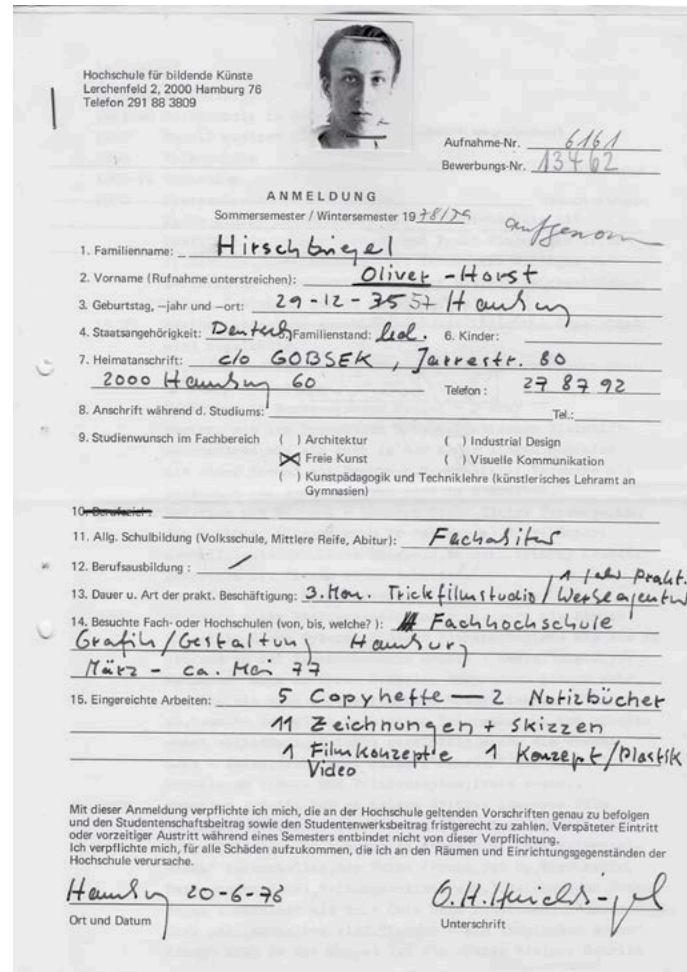 Hochschule für bildende Künste
Lerchenfeld 2, 2000 Hamburg 76
Telefon 291 88 3809
Aufnahme-Nr. 6161
Bewerbungs-Nr. 13462
ANMELDUNG
Sommersemester / Wintersemester 1978/79
aufgenom
1. Familienname: Hirschbiegel
2. Vorname (Rufnahme unterstreichen): Oliver - Horst
3. Geburtstag, –jahr und –ort: 29-12-35 57 Hamburg
4. Staatsangehörigkeit: Deutsch 5. Familienstand: led. 6. Kinder:
7. Heimatanschrift: c/o GOBSEK, Jarrestr. 80
2000 Hamburg 60 Telefon: 27 87 92
8. Anschrift während d. Studiums: Tel.:
9. Studienwunsch im Fachbereich ( ) Architektur ( ) Industrial Design
(X) Freie Kunst ( ) Visuelle Kommunikation
( ) Kunstpädagogik und Techniklehre (künstlerisches Lehramt an
Gymnasien)
10. Berufsziel:
11. Allg. Schulbildung (Volksschule, Mittlere Reife, Abitur): Fachabitur
12. Berufsausbildung : /
1 Jahr Prakt.
13. Dauer u. Art der prakt. Beschäftigung: 3. Mon. Trickfilmstudio / Werbeagentur
14. Besuchte Fach- oder Hochschulen (von, bis, welche? ): Fachhochschule
Grafik/Gestaltung Hamburg
März - ca. Mai 77
15. Eingereichte Arbeiten: 5 Copyhefte — 2 Notizbücher
11 Zeichnungen + Skizzen
1 Filmkonzepte 1 Konzept/Plastik
Video
Mit dieser Anmeldung verpflichte ich mich, die an der Hochschule geltenden Vorschriften genau zu befolgen
und den Studentenschaftsbeitrag sowie den Studentenwerksbeitrag fristgerecht zu zahlen. Verspäteter Eintritt
oder vorzeitiger Austritt während eines Semesters entbindet nicht von dieser Verpflichtung.
Ich verpflichte mich, für alle Schäden aufzukommen, die ich an den Räumen und Einrichtungsgegenständen der
Hochschule verursache.
Hamburg 20-6-78 O.H. Hirschbiegel
Ort und Datum Unterschrift